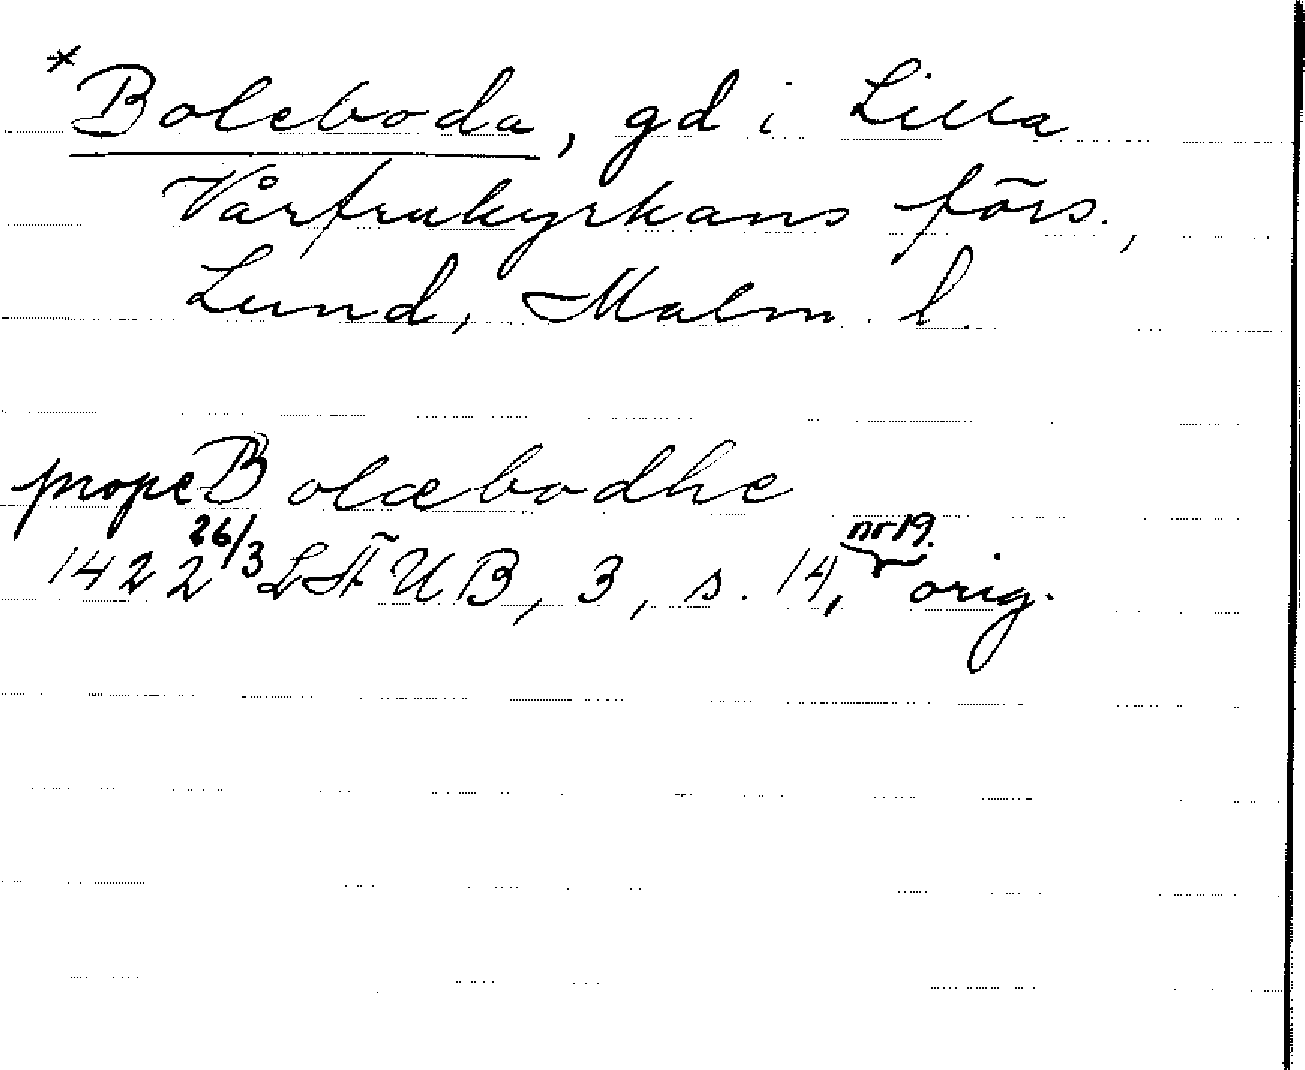 *Boleboda, gd i Lilla
Vårfrukyrkans förs.,
Lund, Malm. l.
prope Bolæbodhe
1422 26/3 LÄUB, 3, s. 14, nr 19. orig.